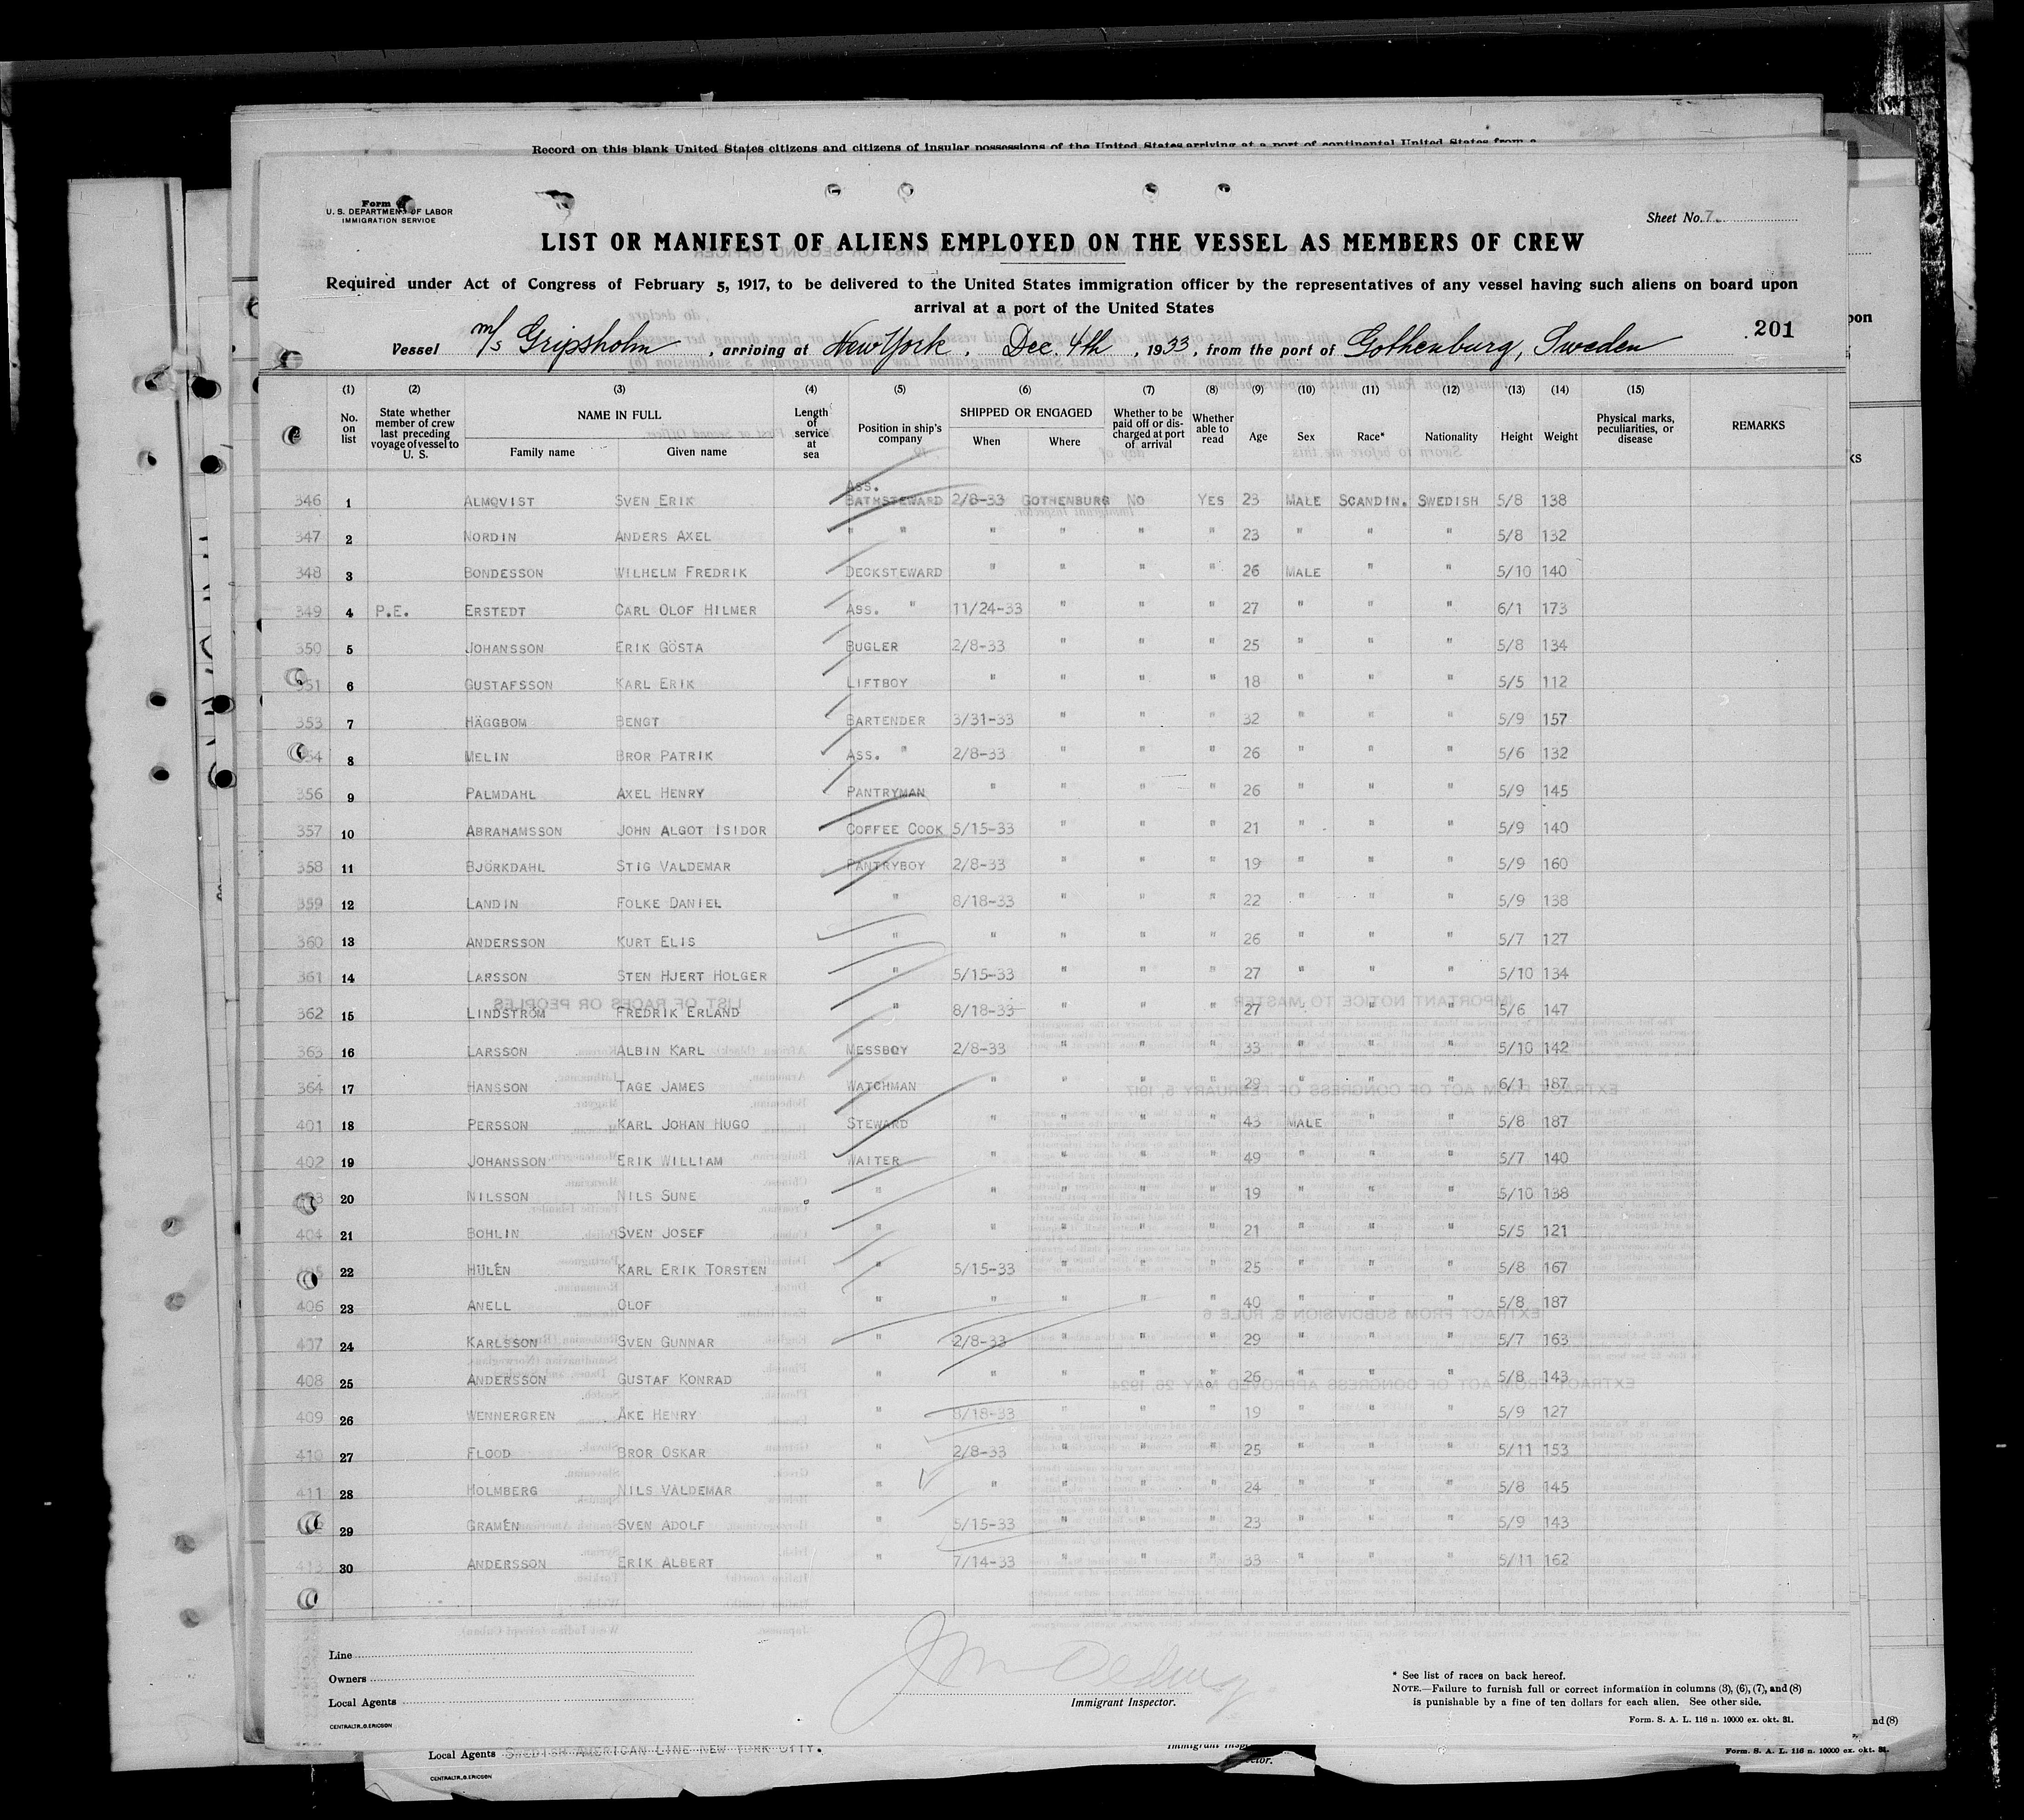 Record on this blank United States citizens and citizens of insular possessions of the United States arriving at a port of continental United States from a
Form
U. S. DEPARTMENT OF LABOR
IMMIGRATION SERVICE
Sheet No. 7.
LIST OR MANIFEST OF ALIENS EMPLOYED ON THE VESSEL AS MEMBERS OF CREW
Required under Act of Congress of February 5, 1917, to be delivered to the United States immigration officer by the representatives of any vessel having such aliens on board upon
arrival at a port of the United States
201
Vessel m/s Gripsholm, arriving at New York, Dec. 4th, 1933, from the port of Gothenburg, Sweden
(1) (2) (3) (4) (5) (6) (7) (8) (9) (10) (11) (12) (13) (14) (15)
No. on list State whether member of crew last preceding voyage of vessel to U. S. NAME IN FULL Family name Given name Length of service at sea Position in ship's company SHIPPED OR ENGAGED When Where Whether to be paid off or discharged at port of arrival Whether able to read Age Sex Race* Nationality Height Weight Physical marks, peculiarities, or disease REMARKS
346 1 ALMQVIST SVEN ERIK ASS. BATHSTEWARD 2/8-33 GOTHENBURG NO YES 23 MALE SCANDIN. SWEDISH 5/8 138
347 2 NORDIN ANDERS AXEL " " " " " " 23 " " " 5/8 132
348 3 BONDESSON WILHELM FREDRIK DECKSTEWARD " " " " 26 MALE " " 5/10 140
349 4 P.E. ERSTEDT CARL OLOF HILMER ASS. " 11/24-33 " " " 27 " " " 6/1 173
350 5 JOHANSSON ERIK GÖSTA BUGLER 2/8-33 " " " 25 " " " 5/8 134
351 6 GUSTAFSSON KARL ERIK LIFTBOY " " " " 18 " " " 5/5 112
353 7 HÄGGBOM BENGT BARTENDER 3/31-33 " " " 32 " " " 5/9 157
354 8 MELIN BROR PATRIK ASS. " 2/8-33 " " " 26 " " " 5/6 132
356 9 PALMDAHL AXEL HENRY PANTRYMAN " " " " 26 " " " 5/9 145
357 10 ABRAHAMSSON JOHN ALGOT ISIDOR COFFEE COOK 5/15-33 " " " 21 " " " 5/9 140
358 11 BJÖRKDAHL STIG VALDEMAR PANTRYBOY 2/8-33 " " " 19 " " " 5/9 160
359 12 LANDIN FOLKE DANIEL " 8/18-33 " " " 22 " " " 5/9 138
360 13 ANDERSSON KURT ELIS " " " " " 26 " " " 5/7 127
361 14 LARSSON STEN HJERT HOLGER " 5/15-33 " " " 27 " " " 5/10 134
362 15 LINDSTRÖM FREDRIK ERLAND " 8/18-33 " " " 27 " " " 5/6 147
363 16 LARSSON ALBIN KARL MESSBOY 2/8-33 " " " 33 " " " 5/10 142
364 17 HANSSON TAGE JAMES WATCHMAN " " " " 29 " " " 6/1 187
401 18 PERSSON KARL JOHAN HUGO STEWARD " " " " 43 MALE " " 5/8 187
402 19 JOHANSSON ERIK WILLIAM WAITER " " " " 49 " " " 5/7 140
403 20 NILSSON NILS SUNE " " " " " 19 " " " 5/10 138
404 21 BOHLIN SVEN JOSEF " " " " " 21 " " " 5/5 121
405 22 HULÉN KARL ERIK TORSTEN " 5/15-33 " " " 25 " " " 5/8 167
406 23 ANELL OLOF " " " " " 40 " " " 5/8 187
407 24 KARLSSON SVEN GUNNAR " 2/8-33 " " " 29 " " " 5/7 163
408 25 ANDERSSON GUSTAF KONRAD " " " " " 26 " " " 5/8 143
409 26 WENNERGREN ÅKE HENRY " 8/18-33 " " " 19 " " " 5/9 127
410 27 FLOOD BROR OSKAR " 2/8-33 " " " 25 " " " 5/11 153
411 28 HOLMBERG NILS VALDEMAR " " " " " 24 " " " 5/8 145
29 GRAMÉN SVEN ADOLF " 5/15-33 " " " 23 " " " 5/9 143
413 30 ANDERSSON ERIK ALBERT " 7/14-33 " " " 33 " " " 5/11 162
Line
Owners
Local Agents
Immigrant Inspector.
* See list of races on back hereof.
NOTE.—Failure to furnish full or correct information in columns (3), (6), (7), and (8)
is punishable by a fine of ten dollars for each alien. See other side.
CENTRALTR., G. ERICSON
Form. S. A. L. 116 n. 10000 ex. okt. 31.
nd (8)
Local Agents SWEDISH AMERICAN LINE NEW YORK CITY.
Form. S. A. L. 116 n. 10000 ex. okt. 31.
CENTRALTR., G. ERICSON